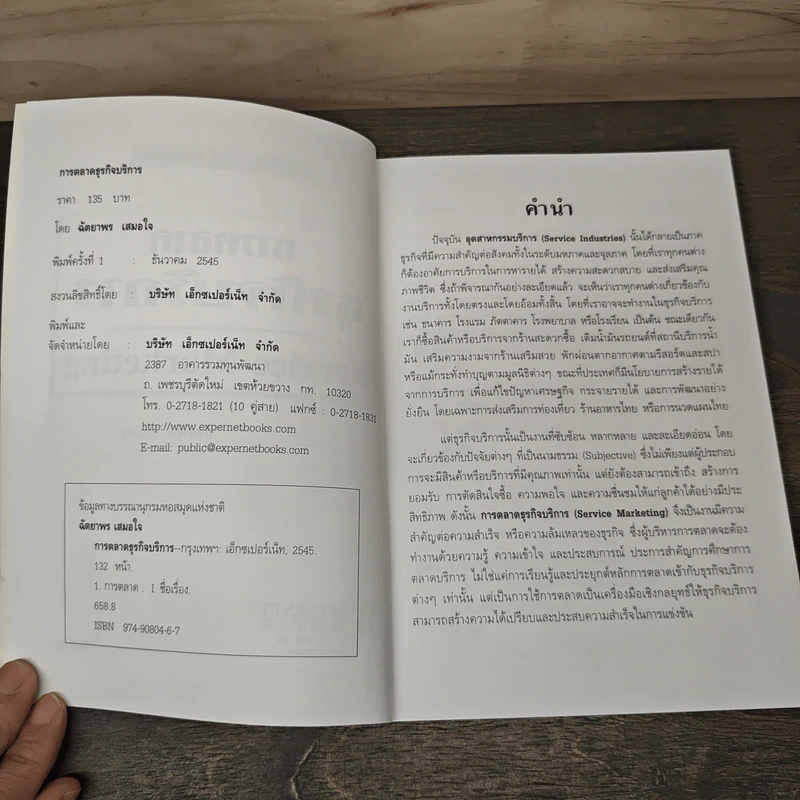 การตลาดธุรกิจบริการ
ราคา 135 บาท
โดย ฉัตยาพร เสมอใจ
พิมพ์ครั้งที่ 1 : ธันวาคม 2545
สงวนลิขสิทธิ์โดย : บริษัท เอ็กซเปอร์เน็ท จำกัด
พิมพ์และ
จัดจำหน่ายโดย : บริษัท เอ็กซเปอร์เน็ท จำกัด
2387 อาคารรวมทุนพัฒนา
ถ. เพชรบุรีตัดใหม่ เขตห้วยขวาง กท. 10320
โทร. 0-2718-1821 (10 คู่สาย) แฟกซ์ : 0-2718-1831
http://www.expernetbooks.com
E-mail: public@expernetbooks.com
ข้อมูลทางบรรณานุกรมหอสมุดแห่งชาติ
ฉัตยาพร เสมอใจ
การตลาดธุรกิจบริการ--กรุงเทพฯ: เอ็กซเปอร์เน็ท, 2545.
132 หน้า.
1. การตลาด . I. ชื่อเรื่อง.
658.8
ISBN 974-90804-6-7
คำนำ
ปัจจุบัน อุตสาหกรรมบริการ (Service Industries) นั้นได้กลายเป็นภาค
ธุรกิจที่มีความสำคัญต่อสังคมทั้งในระดับมหภาคและจุลภาค โดยที่เราทุกคนต่าง
ก็ต้องอาศัยการบริการในการหารายได้ สร้างความสะดวกสบาย และส่งเสริมคุณ
ภาพชีวิต ซึ่งถ้าพิจารณากันอย่างละเอียดแล้ว จะเห็นว่าเราทุกคนต่างเกี่ยวข้องกับ
งานบริการทั้งโดยตรงและโดยอ้อมทั้งสิ้น โดยที่เราอาจจะทำงานในธุรกิจบริการ
เช่น ธนาคาร โรงแรม ภัตตาคาร โรงพยาบาล หรือโรงเรียน เป็นต้น ขณะเดียวกัน
เราก็ซื้อสินค้าหรือบริการจากร้านสะดวกซื้อ เติมน้ำมันรถยนต์ที่สถานีบริการน้ำ
มัน เสริมความงามจากร้านเสริมสวย พักผ่อนตากอากาศตามรีสอร์ตและสปา
หรือแม้กระทั่งทำบุญตามมูลนิธิต่างๆ ขณะที่ประเทศก็มีนโยบายการสร้างรายได้
จากการบริการ เพื่อแก้ไขปัญหาเศรษฐกิจ กระจายรายได้ และการพัฒนาอย่าง
ยั่งยืน โดยเฉพาะการส่งเสริมการท่องเที่ยว ร้านอาหารไทย หรือการนวดแผนไทย
แต่ธุรกิจบริการนั้นเป็นงานที่ซับซ้อน หลากหลาย และละเอียดอ่อน โดย
จะเกี่ยวข้องกับปัจจัยต่างๆ ที่เป็นนามธรรม (Subjective) ซึ่งไม่เพียงแต่ผู้ประกอบ
การจะมีสินค้าหรือบริการที่มีคุณภาพเท่านั้น แต่ยังต้องสามารถเข้าถึง สร้างการ
ยอมรับ การตัดสินใจซื้อ ความพอใจ และความชื่นชมให้แก่ลูกค้าได้อย่างมีประ
สิทธิภาพ ดังนั้น การตลาดธุรกิจบริการ (Service Marketing) จึงเป็นงานมีความ
สำคัญต่อความสำเร็จ หรือความล้มเหลวของธุรกิจ ซึ่งผู้บริหารการตลาดจะต้อง
ทำงานด้วยความรู้ ความเข้าใจ และประสบการณ์ ประการสำคัญการศึกษาการ
ตลาดบริการ ไม่ใช่แค่การเรียนรู้และประยุกต์หลักการตลาดเข้ากับธุรกิจบริการ
ต่างๆ เท่านั้น แต่เป็นการใช้การตลาดเป็นเครื่องมือเชิงกลยุทธ์ให้ธุรกิจบริการ
สามารถสร้างความได้เปรียบและประสบความสำเร็จในการแข่งขัน